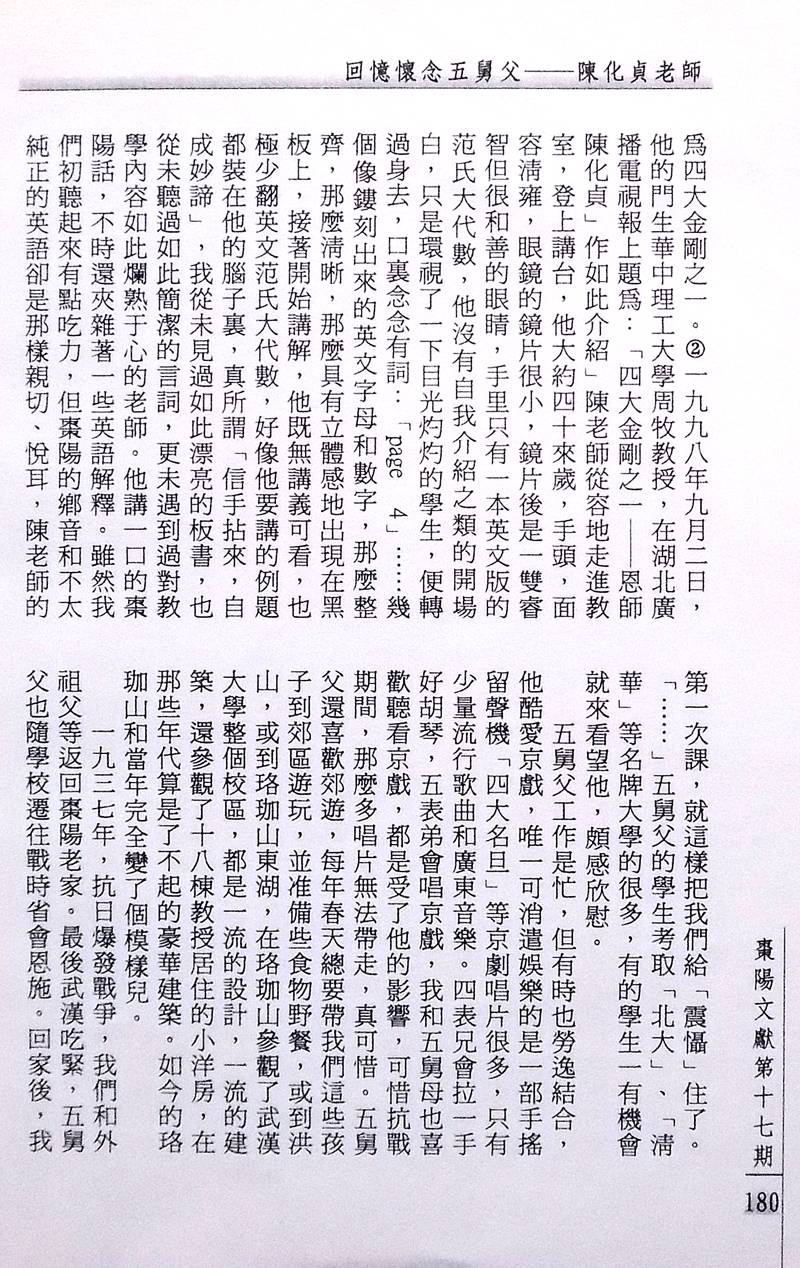 回憶懷念五舅父——陳化貞老師
爲四大金剛之一。②一九九八年九月二日，
他的門生華中理工大學周牧教授，在湖北廣
播電視報上題爲：「四大金剛之一——恩師
陳化貞」作如此介紹」陳老師從容地走進教
室，登上講台，他大約四十來歲，手頭，面
容淸雍，眼鏡的鏡片很小，鏡片後是一雙睿
智但很和善的眼睛，手里只有一本英文版的
范氏大代數，他沒有自我介紹之類的開場
白，只是環視了一下目光灼灼的學生，便轉
過身去，口裏念念有詞：「page 4」……幾
個像鏤刻出來的英文字母和數字，那麼整
齊，那麼清晰，那麼具有立體感地出現在黑
板上，接著開始講解，他既無講義可看，也
極少翻英文范氏大代數，好像他要講的例題
都裝在他的腦子裏，真所謂「信手拈來，自
成妙諦」，我從未見過如此漂亮的板書，也
從未聽過如此簡潔的言詞，更未遇到過對教
學內容如此爛熟于心的老師。他講一口的棗
陽話，不時還夾雜著一些英語解釋。雖然我
們初聽起來有點吃力，但棗陽的鄉音和不太
純正的英語卻是那樣親切、悅耳，陳老師的
第一次課，就這樣把我們給「震懾」住了。
「……」五舅父的學生考取「北大」、「淸
華」等名牌大學的很多，有的學生一有機會
就來看望他，頗感欣慰。
五舅父工作是忙，但有時也勞逸結合，
他酷愛京戲，唯一可消遣娛樂的是一部手搖
留聲機「四大名旦」等京劇唱片很多，只有
少量流行歌曲和廣東音樂。四表兄會拉一手
好胡琴，五表弟會唱京戲，我和五舅母也喜
歡聽看京戲，都是受了他的影響，可惜抗戰
期間，那麼多唱片無法帶走，真可惜。五舅
父還喜歡郊遊，每年春天總要帶我們這些孩
子到郊區遊玩，並准備些食物野餐，或到洪
山，或到珞珈山東湖，在珞珈山參觀了武漢
大學整個校區，都是一流的設計，一流的建
築，還參觀了十八棟教授居住的小洋房，在
那些年代算是了不起的豪華建築。如今的珞
珈山和當年完全變了個模樣兒。
一九三七年，抗日爆發戰爭，我們和外
祖父等返回棗陽老家。最後武漢吃緊，五舅
父也隨學校遷往戰時省會恩施。回家後，我
棗陽文獻第十七期
180